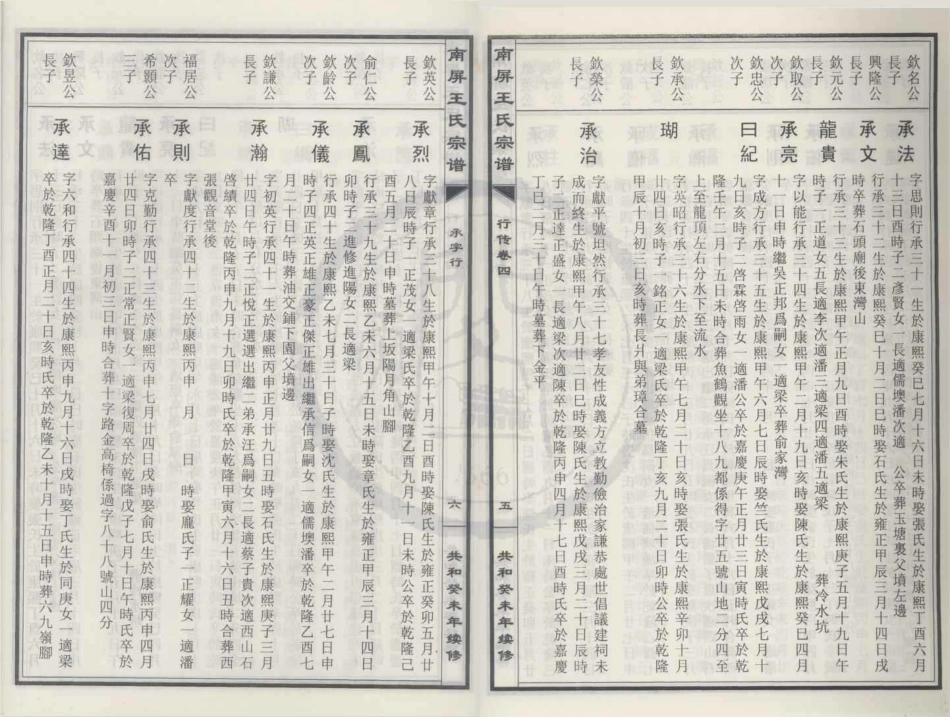 欽名公
長子
承法
字思則行承三十一生於康熙癸巳七月十六日未時娶張氏生於康熙丁酉六月
十三日酉時子二彥賢女一長適儒墺潘次適 公卒葬玉塘裏父墳左邊
興隆公
長子
承文
行承三十二生於康熙癸巳十月二日巳時娶石氏生於雍正甲辰三月十四日戌
時卒葬石頭廟後東灣山
欽元公
長子
龍貴
行承三十三生於康熙甲午正月九日酉時娶朱氏生於康熙庚子五月十九日午
時子一正道女五長適李次適潘三適梁四適潘五適梁 葬冷水坑
欽取公
次子
承亮
字以能行承三十四生於康熙甲午二月十九日亥時娶陳氏生於康熙癸巳四月
十一日申時繼吳正邦爲嗣女一適梁卒葬俞家灣
欽忠公
次子
曰紀
字成方行承三十五生於康熙甲午六月七日辰時娶竺氏生於康熙戊戌七月十
九日亥時子二啓霖啓雨女一適潘公卒於嘉慶庚午正月廿三日寅時氏卒於乾
隆壬午二月十五日未時合葬魚鶴觀坐十八九都係得字廿五號山地二分四至
上至龍頂左右分水下至流水
欽承公
長子
瑚
字英昭行承三十六生於康熙甲午七月二十日亥時娶張氏生於康熙辛卯十月
廿四日亥時子一銘正女一適梁氏卒於乾隆丁亥九月二十日卯時公卒於乾隆
甲辰十月初三日亥時葬長爿與弟璋合墓
欽榮公
長子
承治
字獻平號坦然行承三十七孝友性成義方立教勤儉治家謙恭處世倡議建祠未
成而終生於康熙甲午八月廿二日巳時娶陳氏生於康熙戊戌三月二十日辰時
子二正達正盛女一長適梁次適陳卒於乾隆丙申四月十七日酉時氏卒於嘉慶
丁巳二月三十日午時墓葬下金平
南屏王氏宗谱
行传卷四
五
共和癸未年续修
南屏王氏宗谱
行 承字行
六
共和癸未年续修
欽英公
長子
承烈
字獻章行承三十八生於康熙甲午十月二日酉時娶陳氏生於雍正癸卯五月廿
八日辰時子一正茂女一適梁氏卒於乾隆乙酉九月十一日未時公卒於乾隆己
酉五月二十日申時墓葬上坂陽月角山腳
俞仁公
次子
承鳳
行承三十九生於康熙乙未六月十五日未時娶章氏生於雍正甲辰三月十四日
卯時子二進修進陽女二長適梁
欽齡公
次子
承儀
行承四十生於康熙乙未七月三十日子時娶沈氏生於康熙甲午二月廿七日申
時子四正英正雄正豪正傑正雄出繼承信爲嗣女一適儒墺潘卒於乾隆乙酉七
月二十日午時葬油交鋪下園父墳邊
欽謙公
長子
承瀚
字初英行承四十一生於康熙丙申正月廿九日丑時娶石氏生於康熙庚子三月
廿四日午時子二正悅正選選出繼二弟承汪爲嗣女二長適蔡子貴次適西山石
啓績卒於乾隆丙申九月十九日卯時氏卒於乾隆甲寅六月十六日丑時合葬西
張觀音堂後
福居公
次子
承則
字獻度行承四十二生於康熙丙申 月 日 時娶龐氏子一正耀女一適潘
卒
希顥公
三子
承佑
字克勤行承四十三生於康熙丙申七月廿四日戌時娶俞氏生於康熙丙申四月
廿四日卯時子二正常正賢女一適梁復周卒於乾隆戊子七月十日午時氏卒於
嘉慶辛酉十一月初三日申時合葬十字路金高椅係過字八十八號山四分
欽昱公
長子
承達
字六和行承四十四生於康熙丙申九月十六日戌時娶丁氏生於同庚女一適梁
卒於乾隆丁酉正月二十日亥時氏卒於乾隆乙未十月十五日申時葬六九嶺腳